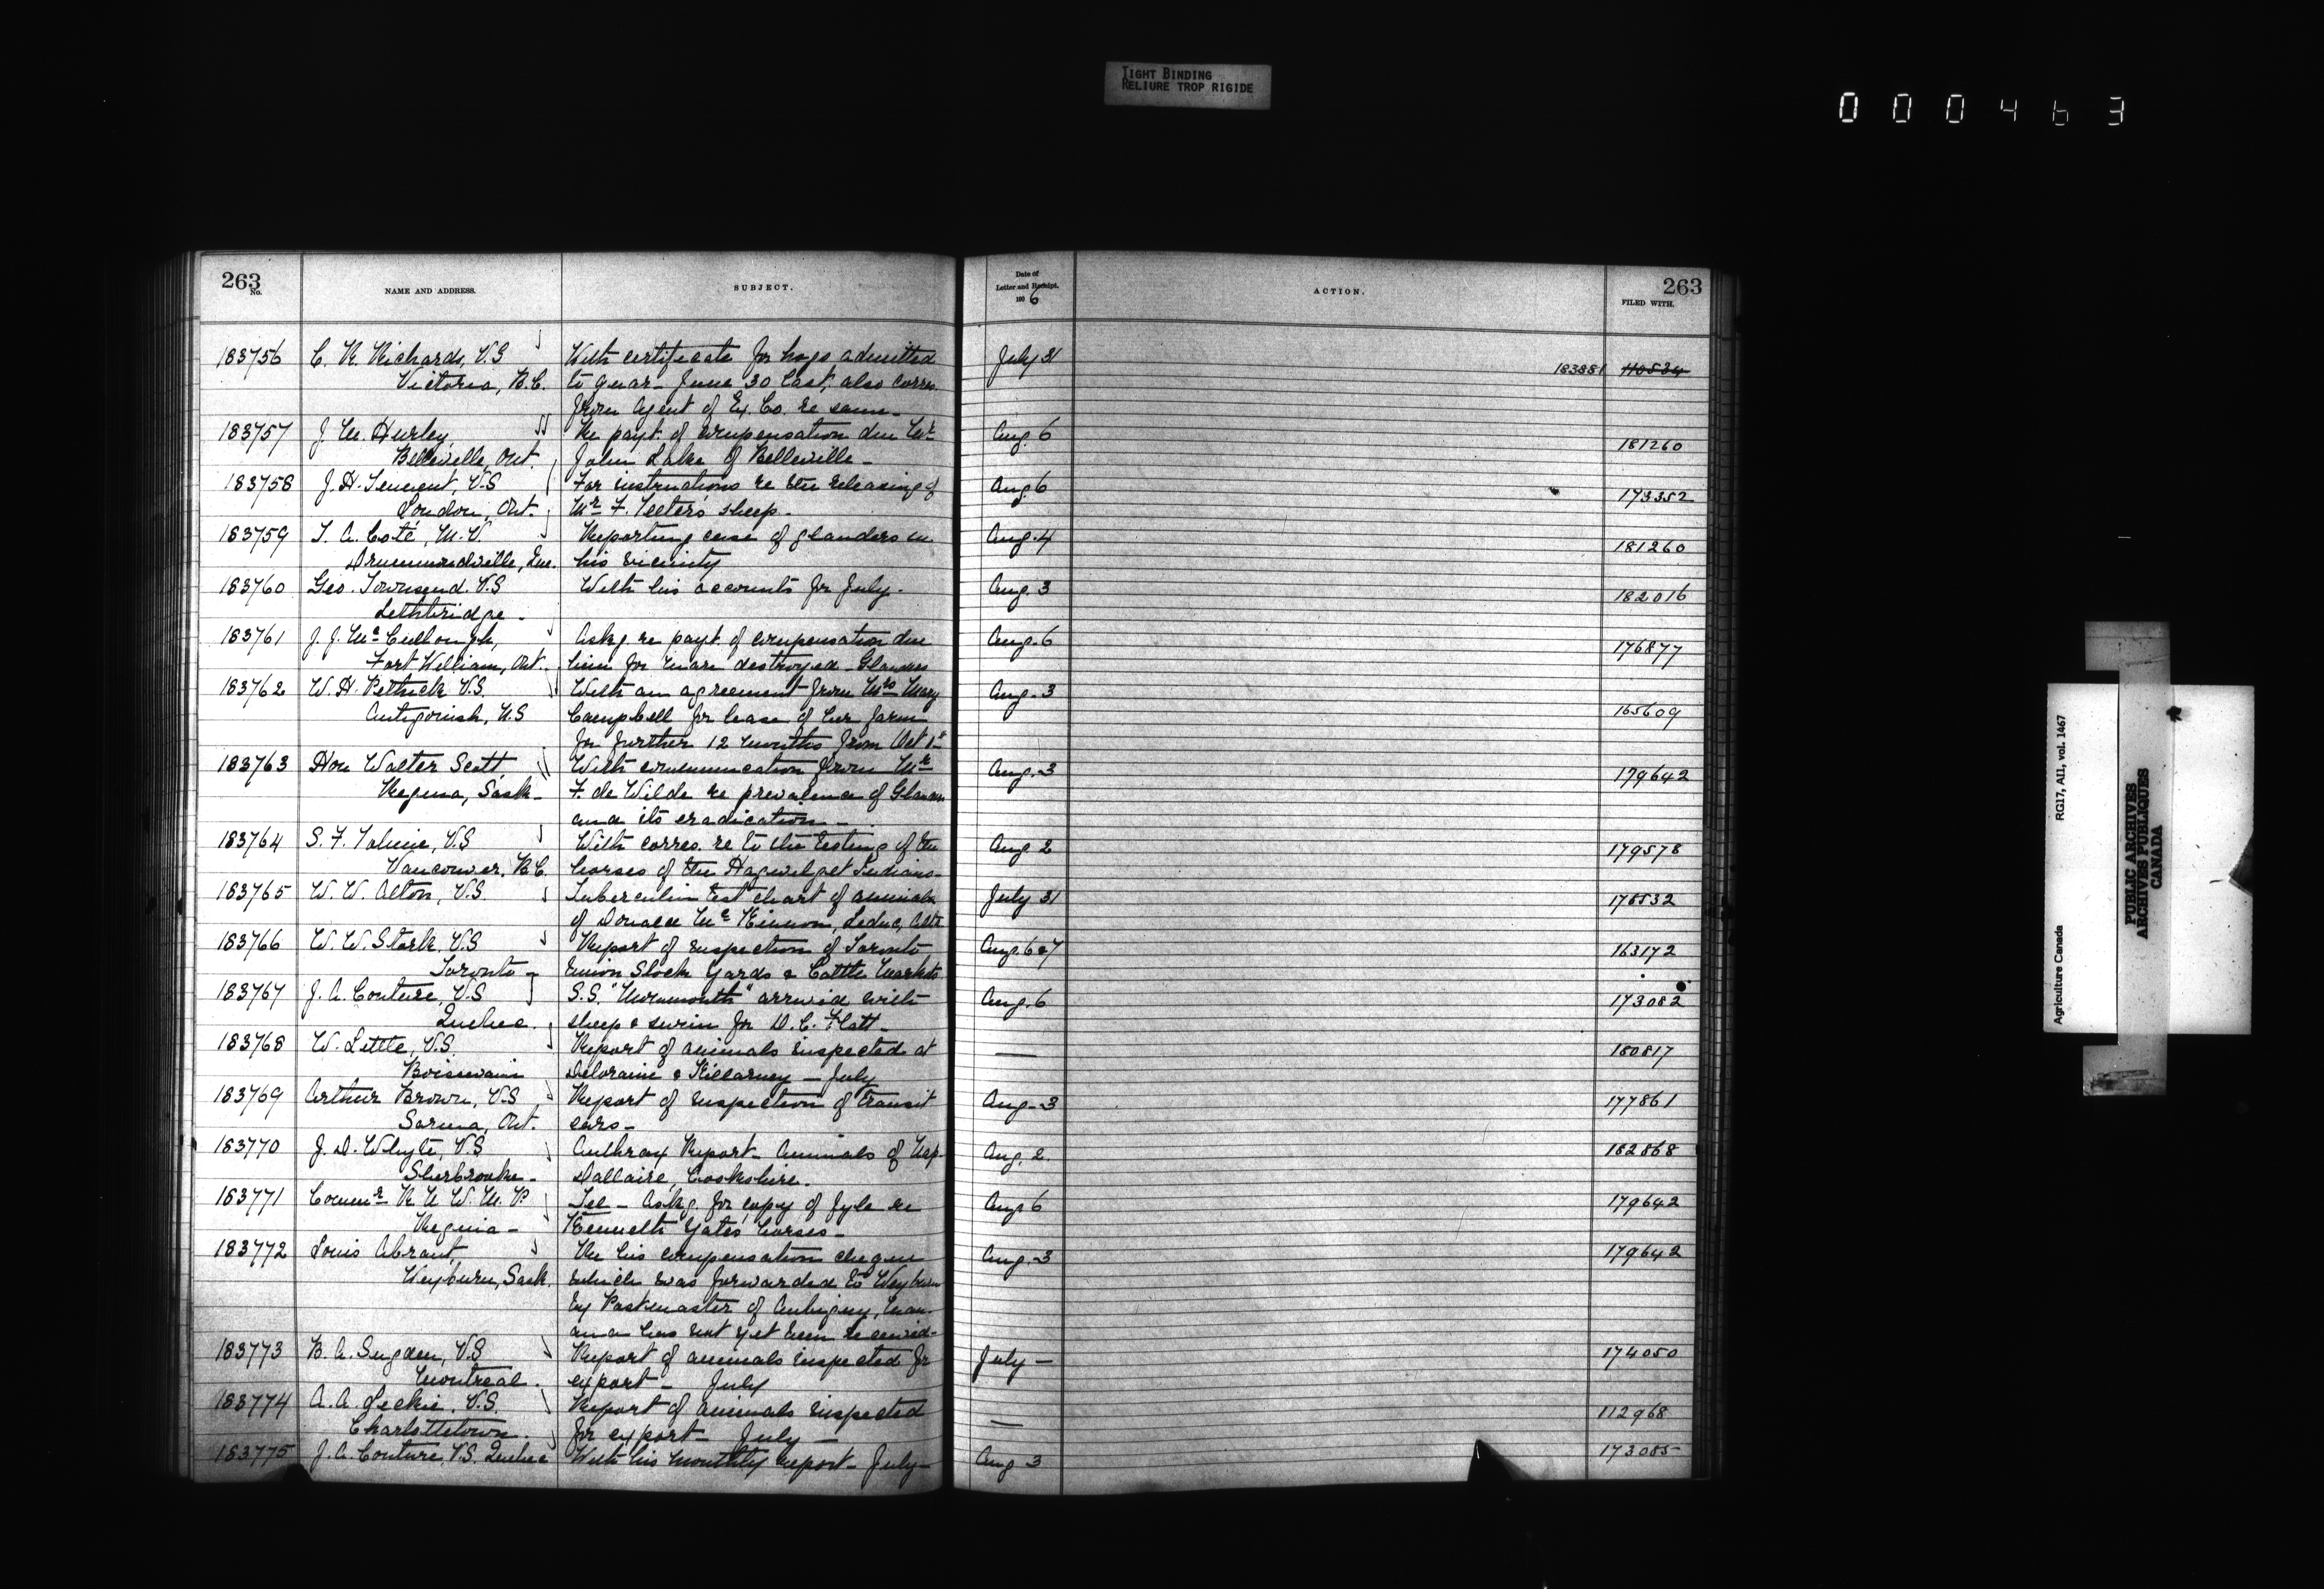 TIGHT BINDING
RELIURE TROP RIGIDE
000463
263
No.
NAME AND ADDRESS.
SUBJECT.
Date of
Letter and Receipt.
190 6
ACTION.
263
FILED WITH.
183756 C. R. Richards, V.S With certificate for hogs admitted July 31 183881 110534
Victoria, B.C. to quar- June 30 last, also corres.
from Agent of Ex. Co. re same-
183757 J. M. Hurley, Re payt. of compensation due Mr Aug. 6 181260
Belleville, Ont. John Lake of Belleville-
183758 J. H. Tennent, V.S For instructions re the releasing of Aug 6 173352
London, Ont. Mr F. Teeter's sheep-
183759 T. A. Coté, M.V. Reporting case of glanders in Aug. 4 181260
Drummondville, Que. his vicinity
183760 Geo. Townsend. V.S With his accounts for July. Aug. 3 182016
Lethbridge-
183761 J. J. McCullough, Askg re payt. of compensation due Aug. 6 176877
Fort William, Ont. him for mare destroyed- Glanders
183762 W. H. Pethick V.S. With an agreement from Mrs Mary Aug. 3 165609
Antigonish, N.S Campbell for lease of her farm
for further 12 months from Oct 1st
183763 Hon Walter Scott, With communication from Mr Aug. 3 179642
Regina, Sask- F. de Wilde re prevalence of Glanders
and its eradication-
183764 S. F. Tolmie, V.S With corres. re to the testing of the Aug. 2 179578
Vancouver, B.C. horses of the Hagwelget Indians-
183765 W. W. Alton, V.S Tuberculin test chart of animals July 31
of Donald McKinnon, Leduc, Alta
183766 W. W. Stork, V.S Report of inspection of Toronto Aug. 6 & 7 163172
Toronto- Union Stock Yards & Cattle Markets
183767 J. A. Couture, V.S S.S. "Monmouth" arrived with Aug. 6 173082
Quebec. sheep & swine for D. C. Flatt-
183768 W. Little, V.S. Report of animals inspected at — 180817
Boissevain Deloraine & Killarney - July
183769 Arthur Brown, V.S Report of inspection of transit Aug-3 177861
Sarnia, Ont. cars-
183770 J. D. Whyte, V.S Anthrax Report- Animals of Nap. Aug. 2. 182868
Sherbrooke- Dallaire, Cookshire.
183771 Commr R N W M P Tel- Askg. for copy of fyle re Aug 6 179642
Regina- Kenneth Yates horses-
183772 Louis Abrant, Re his compensation cheque Aug-3 179642
Weyburn, Sask. which was forwarded to Weyburn
by Postmaster of Aubigny, Man.
and has not yet been received-
183773 B. A. Sugden, V.S Report of animals inspected for July- 174050
Montreal. export- July
183774 A. A. Leckie, V.S. Report of animals inspected — 112968
Charlottetown. for export- July-
183775 J. A. Couture, V.S. Quebec With his monthly report- July- Aug 3 173085
Agriculture Canada
RG17, AII, vol. 1467
PUBLIC ARCHIVES
ARCHIVES PUBLIQUES
CANADA